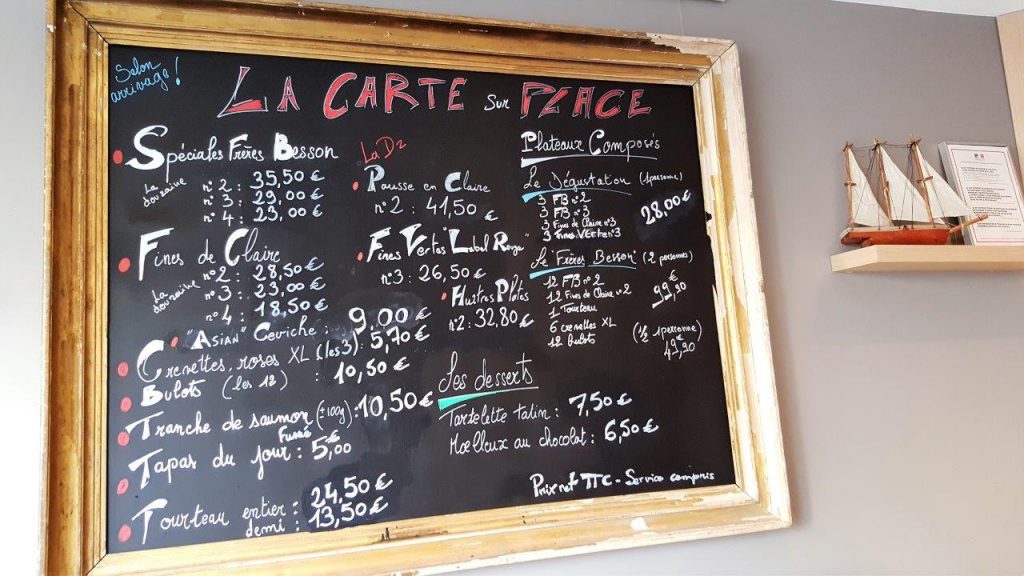 Selon
arrivage!
LA CARTE sur PLACE
Spéciales Frères Besson
La
douzaine
n°2: 35,50 €
n°3: 29,00 €
n°4: 23,00 €
Fines de Claire
La
douzaine
n°2: 28,50 €
n°3: 23,00 €
n°4: 18,50 €
"Asian" Ceviche: 9,00 €
Crevettes roses XL (les 3) 5,70 €
Bulots (les 12) : 10,50 €
Tranche de saumon (±100g): 10,50 €
Fumé
Tapas du jour: 5,00 €
Tourteau entier: 24,50 €
demi: 13,50 €
La D2
Pousse en Claire
n°2: 41,50 €
Fines Vertes "Label Rouge"
n°3: 26,50 €
Huîtres Plates
n°2: 32,80 €
Les desserts
Tartelette tatin: 7,50 €
Moelleux au chocolat: 6,50 €
Plateaux Composés
Le Dégustation (1 personne)
3 FB n°2
3 FB n°3
3 Fines de Claire n°3
3 n°3
28,00 €
Le Frères Besson (2 personnes)
12 FB n°2
12 Fines de Claire n°2
1 Tourteau
6 crevettes XL
12 Bulots
€
(½ 1 personne)
Prix net TTC - Service compris